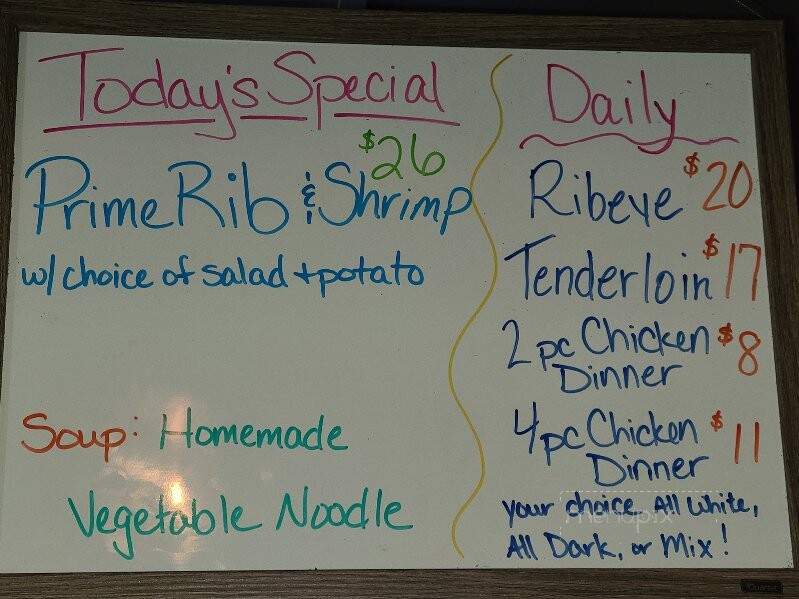 Today's Special
$26
Prime Rib & Shrimp
w/ choice of salad + potato
Soup: Homemade
Vegetable Noodle
Daily
Ribeye $20
Tenderloin $17
2 pc Chicken $8
Dinner
4 pc Chicken $11
Dinner
your choice All White,
All Dark, or Mix!